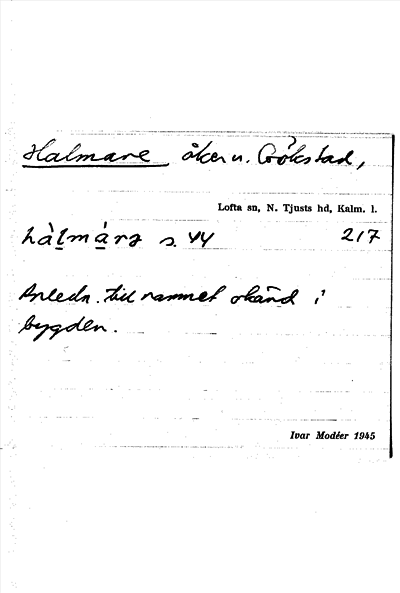 Halmare åker u. Gökstad,
Lofta sn, N. Tjusts hd, Kalm. l.
hàlmárə s. 44 217
Anledn. till namnet okänd i
bygden.
Ivar Modéer 1945